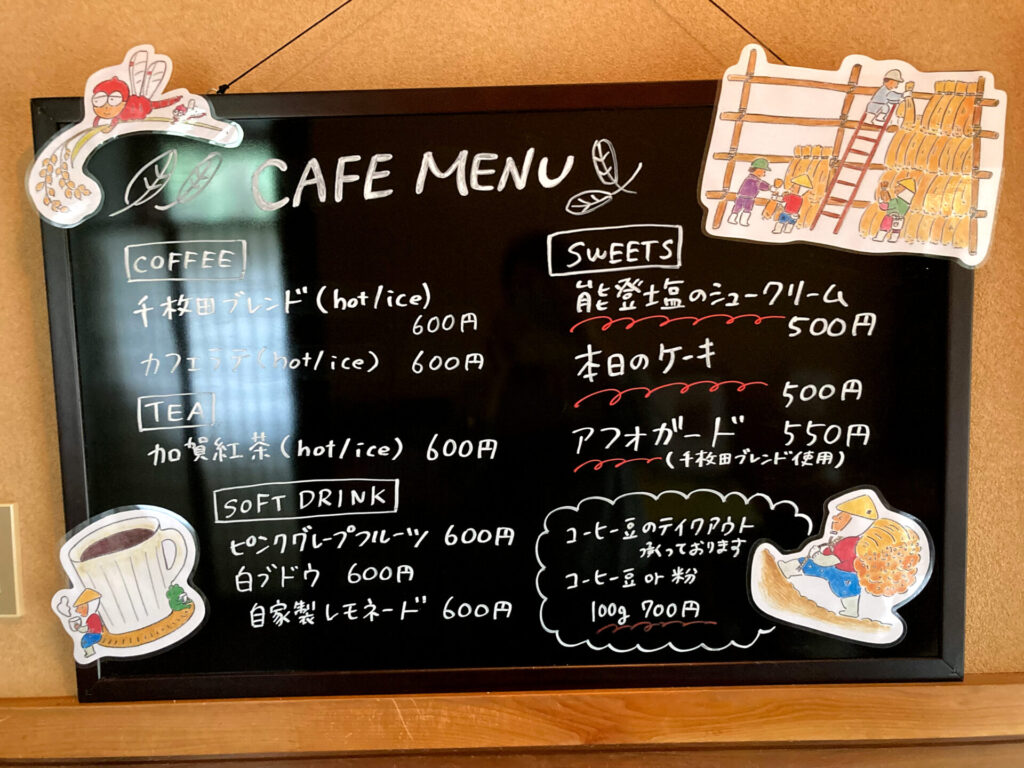 CAFE MENU
COFFEE
千枚田ブレンド(hot/ice)
600円
カフェラテ(hot/ice) 600円
TEA
加賀紅茶(hot/ice) 600円
SOFT DRINK
ピンクグレープフルーツ 600円
白ブドウ 600円
自家製レモネード 600円
SWEETS
能登塩のシュークリーム
500円
本日のケーキ
500円
アフォガード 550円
(千枚田ブレンド使用)
コーヒー豆のテイクアウト
承っております
コーヒー豆or粉
100g 700円